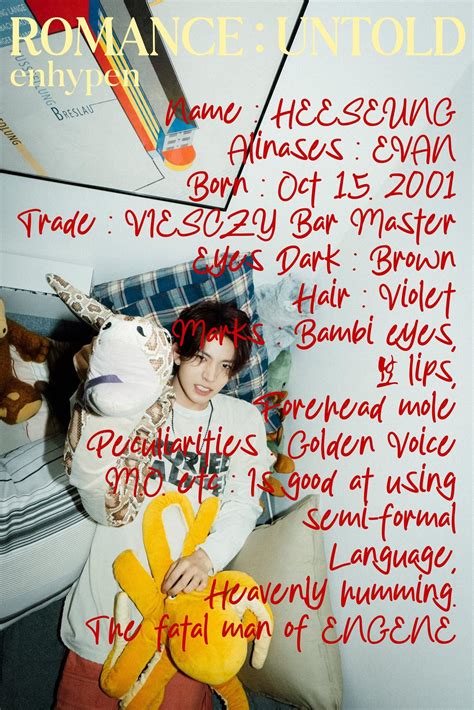 ROMANCE : UNTOLD
enhypen
BRESLAU
Name : HEESEUNG
Alinases : EVAN
Born : Oct 15. 2001
Trade : VIESCZY Bar Master
Eyes Dark : Brown
Hair : Violet
Marks : Bambi eyes,
lips,
Forehead mole
Peculiarities : Golden Voice
M.O. etc : Is good at using
semi-formal
Language,
Heavenly humming.
The fatal man of ENGENE